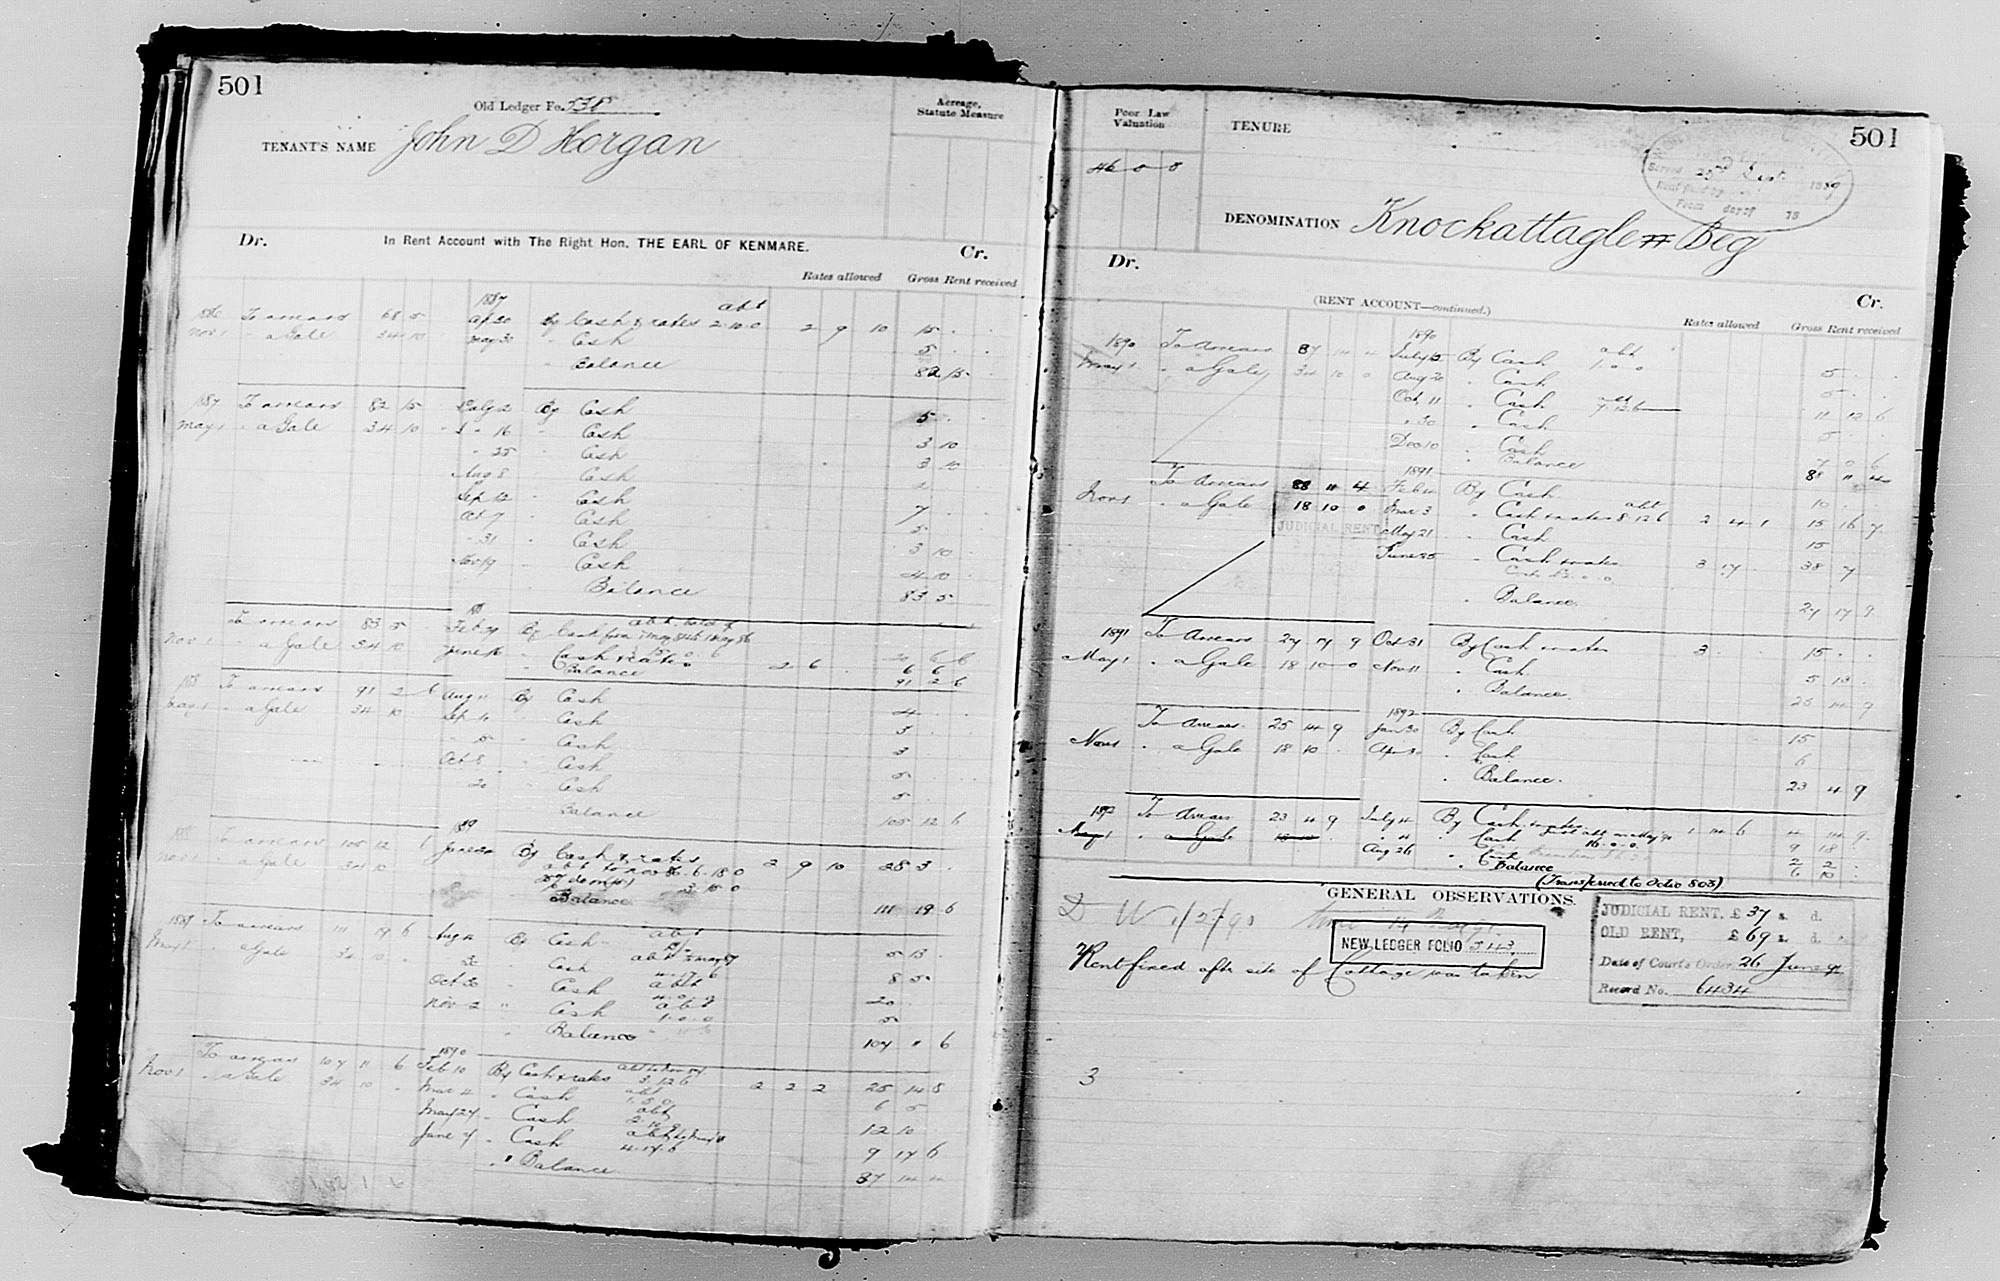 501
Old Ledger Fo. 538
TENANT'S NAME John D Horgan
Acreage, Statute Measure
Dr. In Rent Account with The Right Hon. THE EARL OF KENMARE. Cr.
Rates allowed Gross Rent received
1887 abt
1886 To arrears 68 5 Ap 30 By Cash & rates 2.10.0 2 9 10 15 . .
Nov 1 " a Gale 34 10 May 30 " Cash 5 . .
" Balance 82 15 .
1887 To arrears 82 15 By Cash 5 . .
May 1 " a Gale 34 10 " 16 " Cash 3 10
" 25 " Cash 3 10
Aug 8 " Cash 2
Sep 12 " Cash 7
Oct 7 " Cash 5
" 31 " Cash 3 10
Nov 19 " Cash 4 10
Balance 83 5
To arrears 83 5 Feb By Cash 20 6 6
Nov 1 " a Gale 34 10 June 16 " Cash & rates 2 6 . 6 6
" Balance 91 2 6
188 To arrears 91 2 6 Aug 11 By Cash 4 . .
May 1 " a Gale 34 10 Sep " Cash 3 . .
" Cash 3
Oct 8 " Cash 5
20 " Cash 5
Balance 105 12 6
1889
188 To arrears 105 12 6 June By Cash & rates 2 9 10 28 3 .
Nov 1 " a Gale 34 10 abt to Nov 86 . 6.18.0
3.15.0
Balance 111 19 6
1889 To arrears 111 19 6 Aug 12 By Cash abt 5 13
May 1 " a Gale 34 10 . " Cash abt to May 87 8 5
4.17.6
Oct 30 " Cash abt 20
4.0.0
Nov 2 " Cash abt 5
1.0.0
" Balance 107 " 6
1890
To arrears 107 11 6 Feb 10 By Cash & rates 3.12.6 2 2 2 25 14 8
Nov 1 " a Gale 34 10 . Mar " Cash abt 6 5
May 27 " Cash abt 12 10
2.10.0
June 7 " Cash 4.17.6 9 17 6
" Balance 87 14 4
Poor Law Valuation
46 0 0
TENURE
501
Served 25th Sept. 1889
Rent paid by
From day of 18
DENOMINATION Knockattaglemore Beg
Dr. (RENT ACCOUNT—continued.) Cr.
Rates allowed Gross Rent received
1890
1890 To Arrears 87 14 4 July 15 By Cash abt 1.0.0 5 . .
May 1 " a Gale 34 10 0 Aug 20 " Cash 5 . .
Oct 11 " Cash 7.12.6 11 12 6
" 30 " Cash 5 . .
Dec 10 " Cash 7 0 6
" Balance 88 11 4
1891
To Arrears 88 11 4 Feb By Cash 10 . .
Nov 1 " a Gale 18 10 0 Mar 3 " Cash & rates abt 8.12.6 2 4 1 15 16 7
JUDICIAL RENT May 21 " Cash 15
June 25 " Cash & rates 3 17 38 7
" Balance. 27 17 9
1891 To Arrears 27 17 9 Oct 31 By Cash & rates 3 . . 15 . .
May 1 " a Gale 18 10 0 Nov 11 " Cash 5 13 .
" Balance. 25 14 9
1892
To Arrears 25 14 9 Jan 30 By Cash 15
Nov 1 " a Gale 18 10 . Ap 30 " Cash 6
" Balance. 23 4 9
1892 To Arrears 23 4 9 July 4 By Cash & rates 1 14 6 4 14 9
May 1 " a Gale 18 10 " 4 " Cash 16.0.0 9 18
Aug 26 " Cash 2 2
" Balance 6 10
(Transferred to Folio 803)
GENERAL OBSERVATIONS.
1/2/90
NEW LEDGER FOLIO 543
Rent fixed after site of Cottage was taken
JUDICIAL RENT, £ 37 s. d.
OLD RENT, £ 69 s. d.
Date of Court's Order 26 June 91
Record No. 6434
3